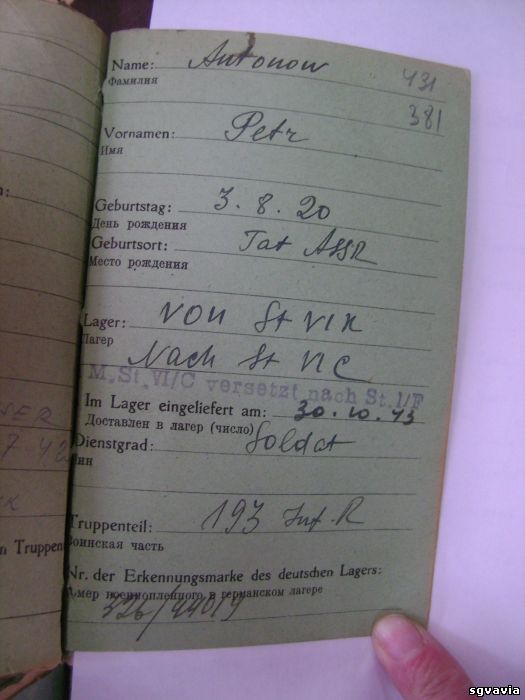 Name: Antonow
Фамилия
431
381
Vornamen: Petr
Имя
Geburtstag: 3. 8. 20
День рождения
Geburtsort: Tat ASSR
Место рождения
Lager: von St VI K
Лагерь
Nach St VI C
M. St. VI/C versetzt nach St. I/F
Im Lager eingeliefert am: 30. 10. 43
Доставлен в лагер (число)
Dienstgrad: Soldat
Чин
Truppenteil: 193 Inf. R
Воинская часть
Nr. der Erkennungsmarke des deutschen Lagers:
Номер военнопленного в германском лагере
326/
n Truppen
sgvavia